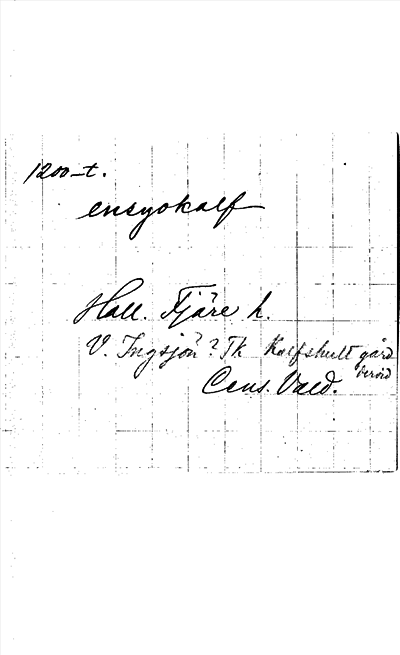 1200-t.
ensyokalf
Hall. Fjäre h.
V. Ingsjön? Tk Kalfshult gård
bervid
Cens. Vald.